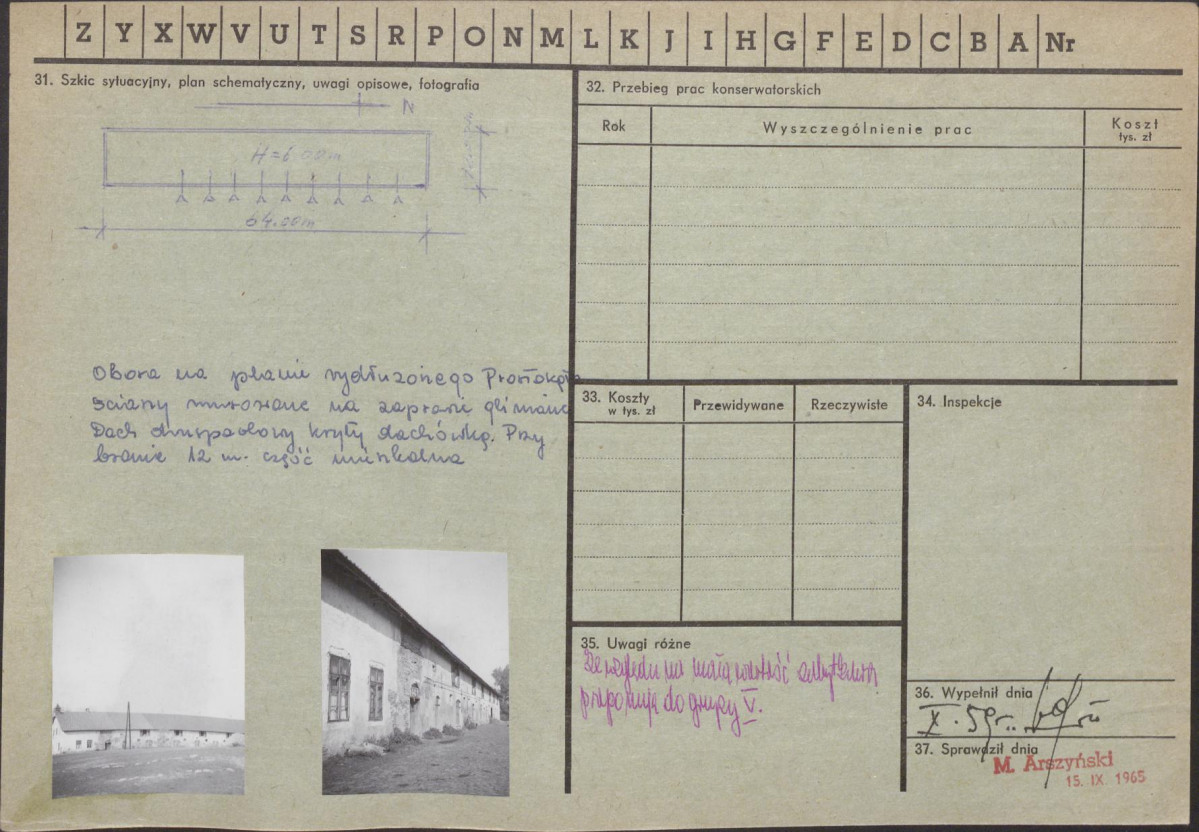 Z Y X W V U T S R P O N M L K J I H G F E D C B A Nr
31. Szkic sytuacyjny, plan schematyczny, uwagi opisowe, fotografia
N
H=6.00m
64.00m
Obora na planie wydłużonego Prostokąta
Ściany murowane na zaprawie glinianej
Dach dwuspadowy kryty dachówką. Przy
bramie 12 m. część mieszkalna
32. Przebieg prac konserwatorskich
Rok
Wyszczególnienie prac
Koszt
tys. zł
33. Koszty
w tys. zł
Przewidywane
Rzeczywiste
34. Inspekcje
35. Uwagi różne
Ze względu na małą wartość zabytkową
proponuję do grupy V.
36. Wypełnił dnia
X. 59 r.
37. Sprawdził dnia
M. Arszyński
15. IX. 1965